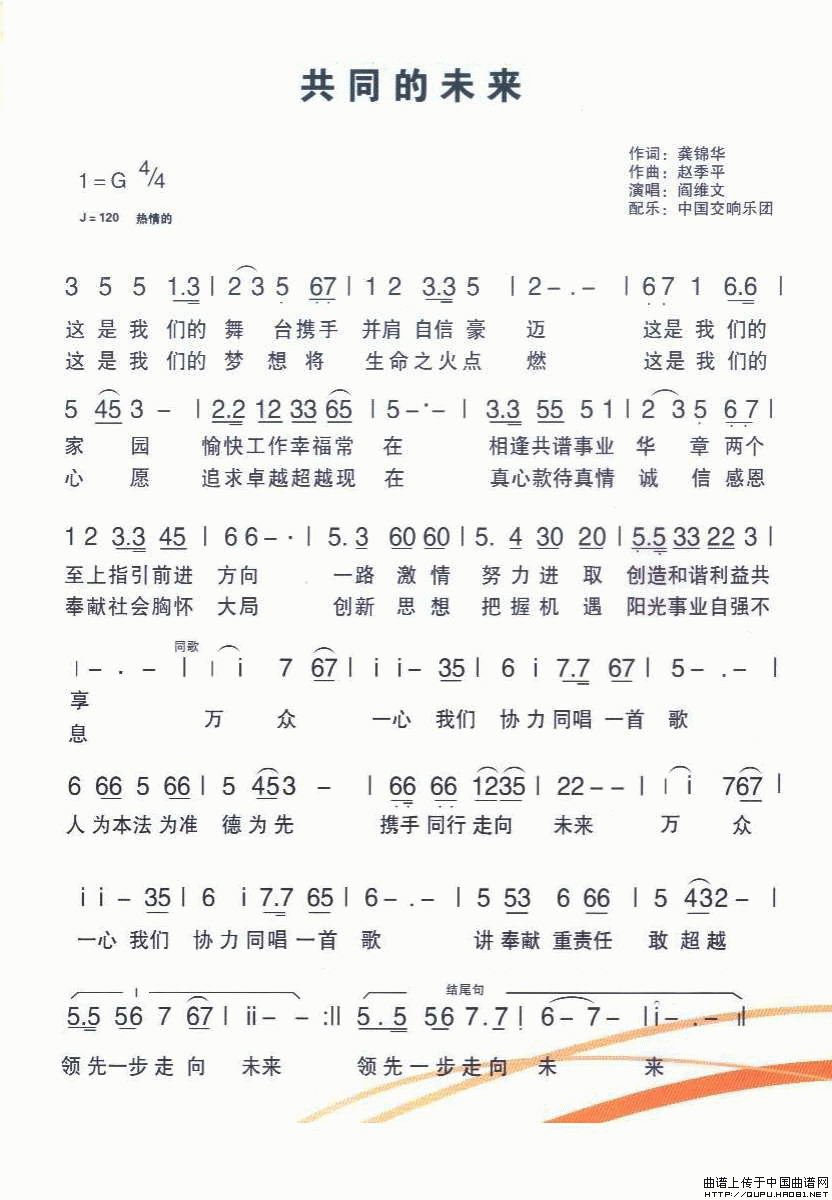 共同的未来
作词：龚锦华
1=G 4/4
作曲：赵季平
演唱：阎维文
J=120 热情的
配乐：中国交响乐团
3 5 5 1.3 | 2 3 5 67 | 1 2 3.3 5 | 2 - . - | 6 7 1 6.6 |
这是我们的舞台携手并肩自信豪迈 这是我们的
这是我们的梦想将 生命之火点燃 这是我们的
5 45 3 - | 2.2 12 33 65 | 5 - · - | 3.3 55 5 1 | 2 3 5 6 7 |
家园 愉快工作幸福常在 相逢共谱事业华章两个
心愿 追求卓越超越现在 真心款待真情诚信感恩
1 2 3.3 45 | 6 6 - · | 5. 3 60 60 | 5. 4 30 20 | 5.5 33 22 3 |
至上指引前进 方向 一路激情 努力进取 创造和谐利益共
奉献社会胸怀 大局 创新思想 把握机遇 阳光事业自强不
同歌
i - . - | i i 7 67 | i i - 35 | 6 i 7.7 67 | 5 - . - |
享
万众 一心我们 协力同唱一首歌
息
6 66 5 66 | 5 453 - | 66 66 1235 | 22 - - | i i 767 |
人为本法为准 德为先 携手同行走向 未来 万众
i i - 35 | 6 i 7.7 65 | 6 - . - | 5 53 6 66 | 5 432 - |
一心我们 协力同唱一首歌 讲奉献重责任 敢超越
结尾句
5.5 56 7 67 | ii - - :|| 5.5 56 7.7 | 6 - 7 - | i - . - ||
领先一步走向 未来 领先一步走向 未 来
曲谱上传于中国曲谱网
HTTP://QUPU.HAO81.NET